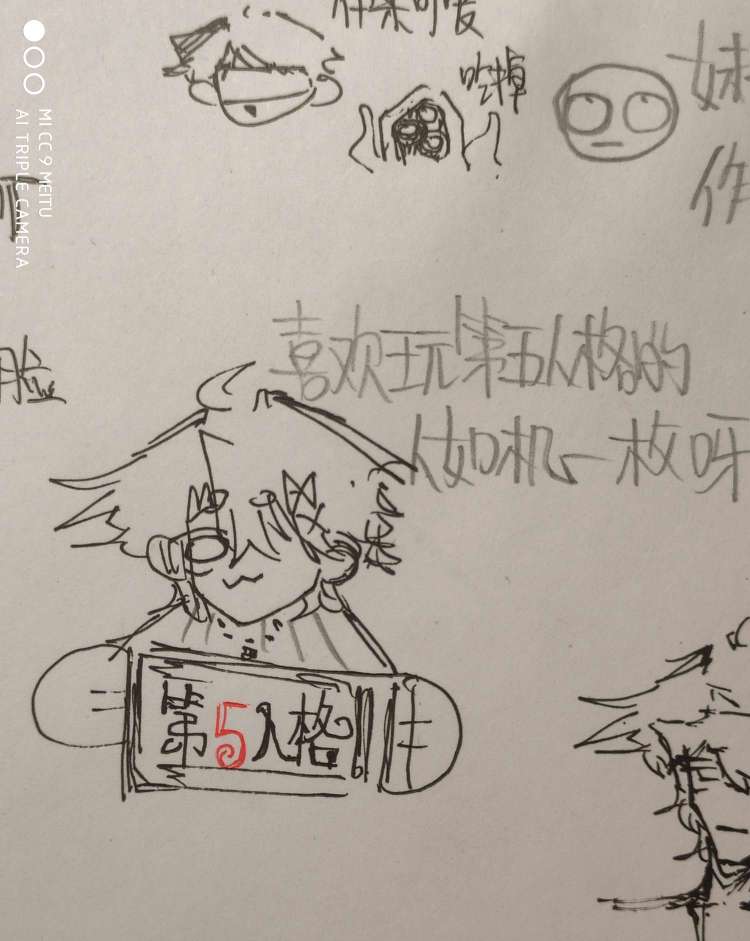 可爱
吃掉
妹
作
MI CC 9 MEITU
AI TRIPLE CAMERA
脸
喜欢玩第五人格的
人如机一枚呀
第5人格